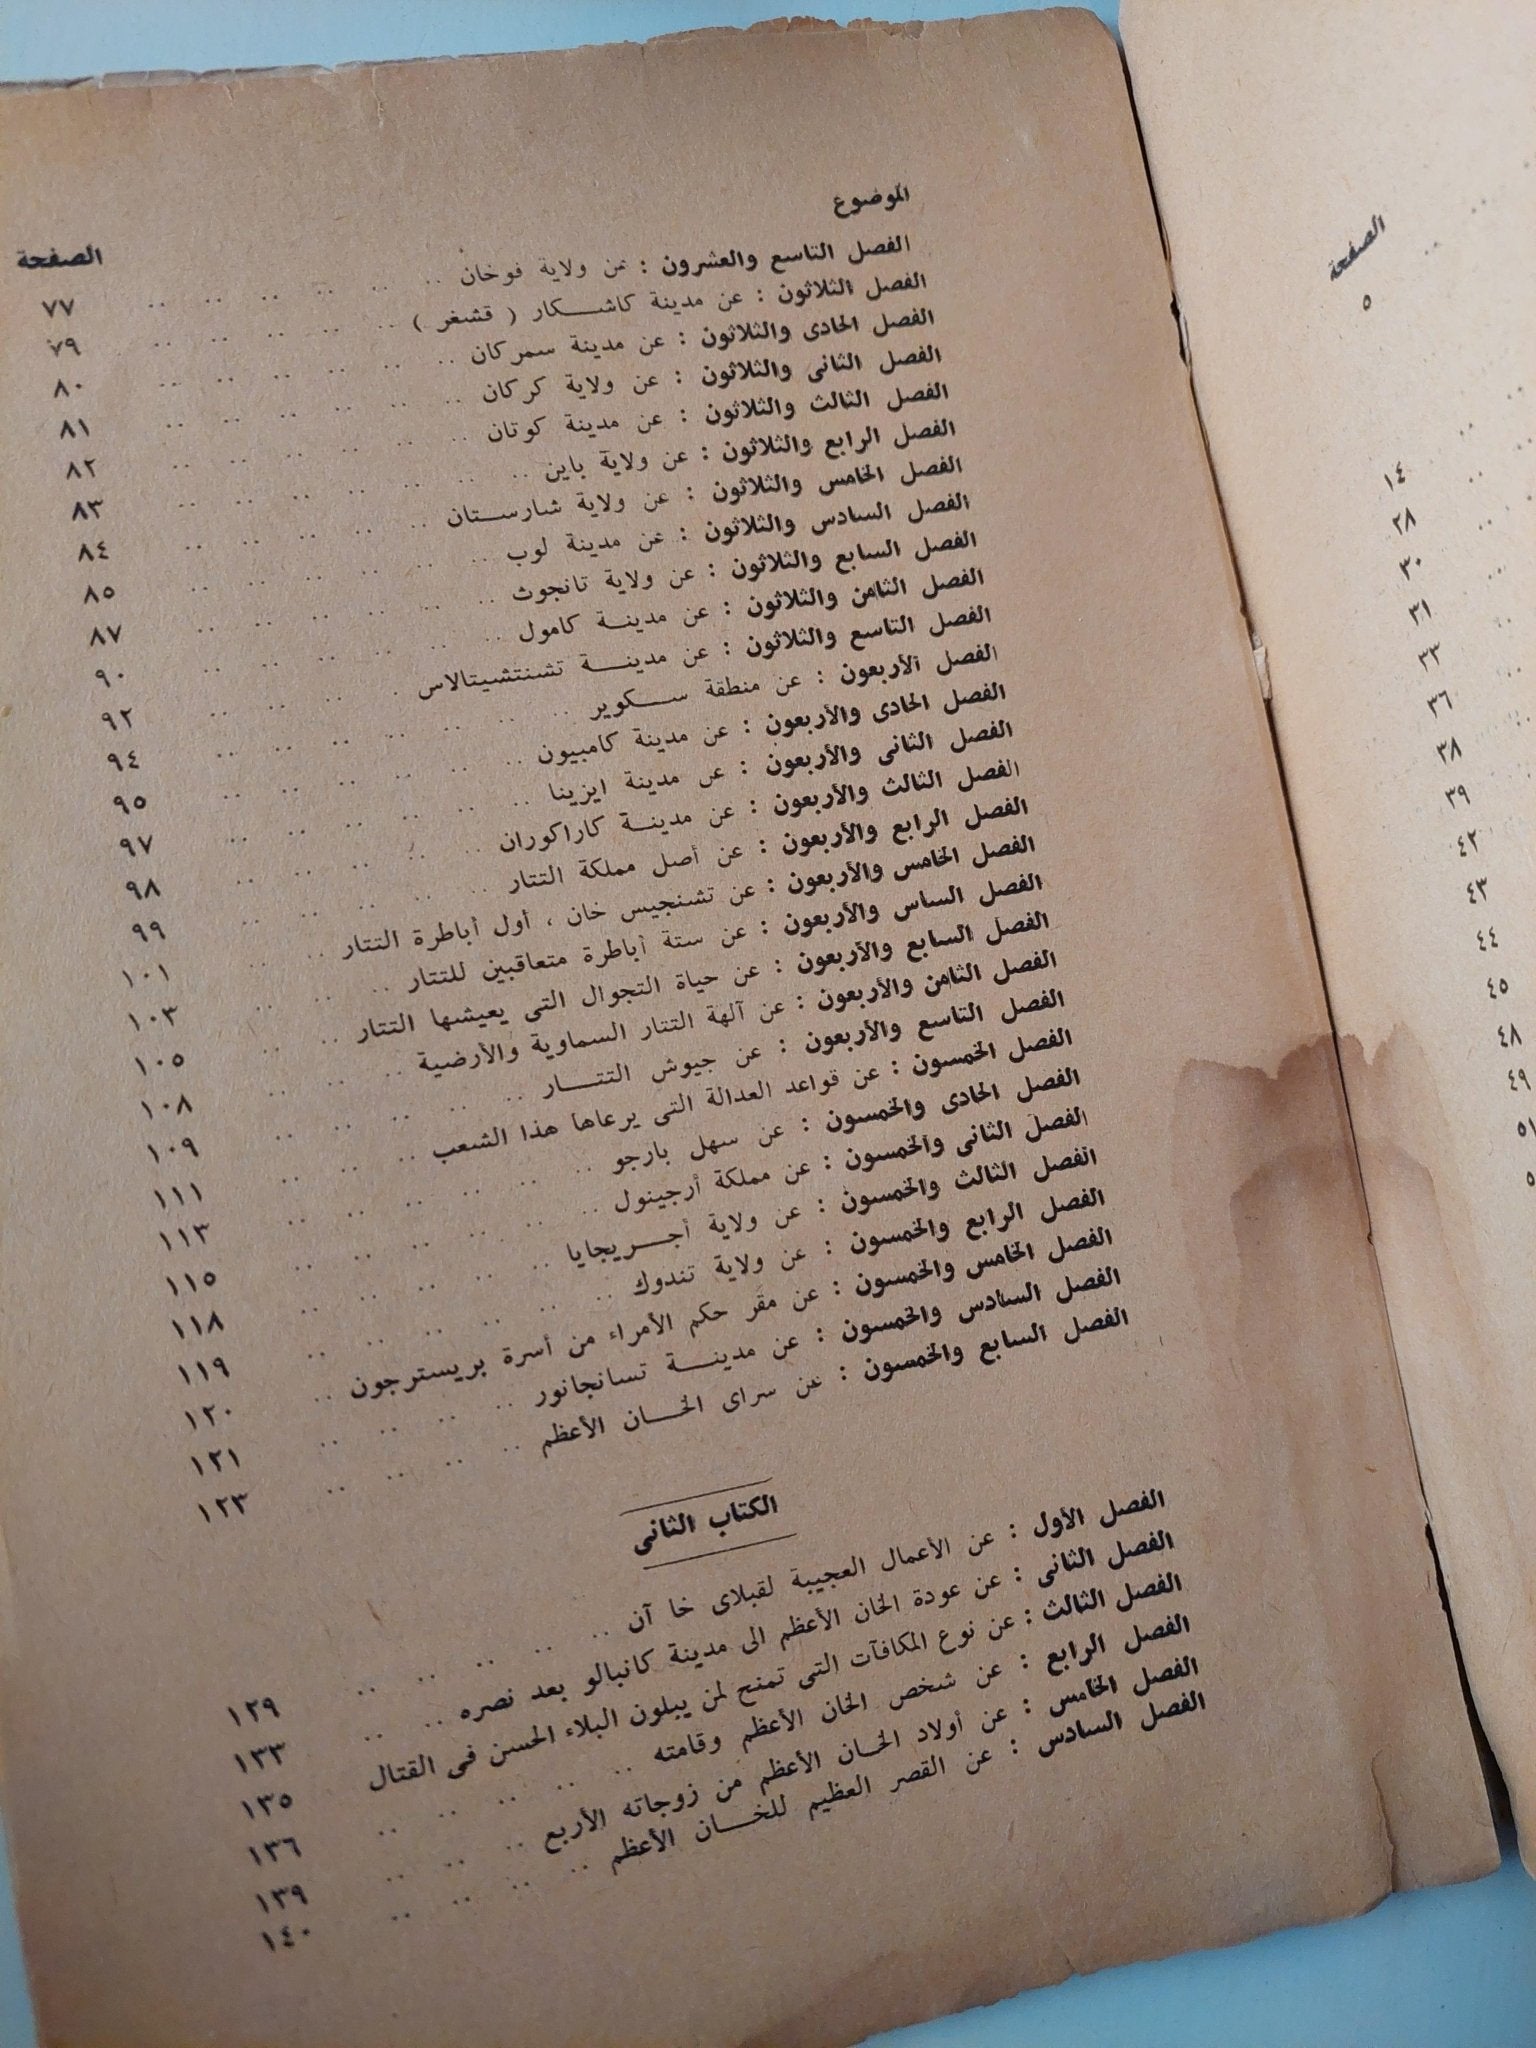 الموضوع الصفحة
الفصل التاسع والعشرون : عن ولاية فوخان .. .. .. .. .. .. ٧٧
الفصل الثلاثون : عن مدينة كاشكار ( قشغر ) .. .. .. .. .. ٧٩
الفصل الحادى والثلاثون : عن مدينة سمركان .. .. .. .. .. .. ٨٠
الفصل الثانى والثلاثون : عن ولاية كركان .. .. .. .. .. .. ٨١
الفصل الثالث والثلاثون : عن مدينة كوتان .. .. .. .. .. .. ٨٢
الفصل الرابع والثلاثون : عن ولاية باين .. .. .. .. .. .. ٨٣
الفصل الخامس والثلاثون : عن ولاية شارستان .. .. .. .. .. ٨٤
الفصل السادس والثلاثون : عن مدينة لوب .. .. .. .. .. .. ٨٥
الفصل السابع والثلاثون : عن ولاية تانجوث .. .. .. .. .. .. ٨٧
الفصل الثامن والثلاثون : عن مدينة كامول .. .. .. .. .. .. ٩٠
الفصل التاسع والثلاثون : عن مدينة تشنتشيتالاس .. .. .. .. ٩٢
الفصل الأربعون : عن منطقة سكوير .. .. .. .. .. .. ٩٤
الفصل الحادى والأربعون : عن مدينة كامبيون .. .. .. .. .. ٩٥
الفصل الثانى والأربعون : عن مدينة ايزينا .. .. .. .. .. .. ٩٧
الفصل الثالث والأربعون : عن مدينة كاراكوران .. .. .. .. .. ٩٨
الفصل الرابع والأربعون : عن أصل مملكة التتار .. .. .. .. .. ٩٩
الفصل الخامس والأربعون : عن تشنجيس خان ، أول أباطرة التتار .. .. ١٠١
الفصل الساس والأربعون : عن ستة أباطرة متعاقبين للتتار .. .. .. ١٠٣
الفصل السابع والأربعون : عن حياة التجوال التى يعيشها التتار .. .. ١٠٥
الفصل الثامن والأربعون : عن آلهة التتار السماوية والأرضية .. .. .. ١٠٨
الفصل التاسع والأربعون : عن جيوش التتار .. .. .. .. .. ١٠٩
الفصل الخمسون : عن قواعد العدالة التى يرعاها هذا الشعب .. .. .. ١١١
الفصل الحادى والخمسون : عن سهل بارجو .. .. .. .. .. .. ١١٣
الفصل الثانى والخمسون : عن مملكة أرجينول .. .. .. .. .. ١١٥
الفصل الثالث والخمسون : عن ولاية أجريجايا .. .. .. .. .. ١١٨
الفصل الرابع والخمسون : عن ولاية تندوك .. .. .. .. .. .. ١١٩
الفصل الخامس والخمسون : عن مقر حكم الأمراء من أسرة بريسترجون .. ١٢٠
الفصل السادس والخمسون : عن مدينة تسانجانور .. .. .. .. ١٢١
الفصل السابع والخمسون : عن سراى الخان الأعظم .. .. .. .. ١٢٣
الكتاب الثانى
الفصل الأول : عن الأعمال العجيبة لقبلاى خا آن .. .. .. .. .. ١٢٩
الفصل الثانى : عن عودة الخان الأعظم الى مدينة كانبالو بعد نصره .. .. ١٣٣
الفصل الثالث : عن نوع المكافآت التى تمنح لمن يبلون البلاء الحسن فى القتال ١٣٥
الفصل الرابع : عن شخص الخان الأعظم وقامته .. .. .. .. .. ١٣٦
الفصل الخامس : عن أولاد الخان الأعظم من زوجاته الأربع .. .. .. ١٣٩
الفصل السادس : عن القصر العظيم للخان الأعظم .. .. .. .. ١٤٠
الصفحة
٥
١٤
٢٨
٣٠
٣١
٣٣
٣٦
٣٨
٣٩
٤٢
٤٣
٤٤
٤٥
٤٨
٤٩
٥١